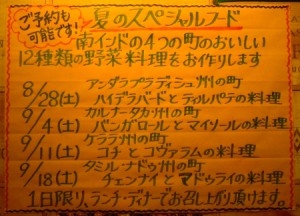 ご予約も
可能です!
夏のスペシャルフード
南インドの4つの町のおいしい
12種類の野菜料理をお作りします
アンダラプラディシュ州の町
8/28(土) ハイデラバードとティルパテの料理
カルナータカ州の町
9/4(土) バンガロールとマイソールの料理
ケララ州の町
9/11(土) コチとコヴァラムの料理
タミル・ナドゥ州の町
9/18(土) チェンナイとマドゥライの料理
1日限り、ランチ・ディナーでお召し上がり頂けます。